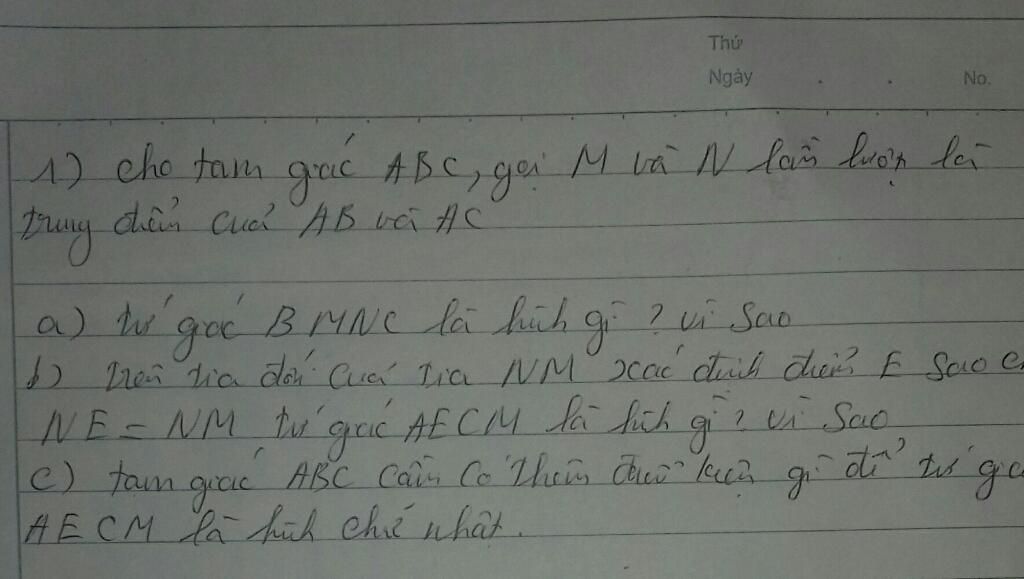 Thứ
Ngày . . No.
1) cho tam giác ABC, gọi M và N lần lượt là
trung điểm của AB và AC
a) tứ giác BMNC là hình gì ? vì sao
b) trên tia đối của tia NM xác định điểm E sao c
NE = NM tứ giác AECM là hình gì ? vì sao
c) tam giác ABC cần có thêm điều kiện gì để tứ giá
AECM là hình chữ nhật.